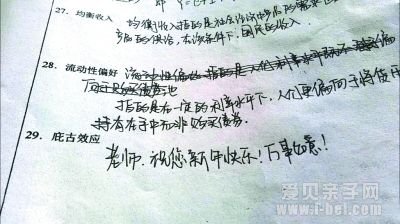 27. 均衡收入
均衡收入指的是社会经济中
产品的供给，在该条件下，国民的收入
28. 流动性偏好
指的是在一定的利率水平下，人们更偏向于将货币
持有在手中而非购买债券.
29. 庇古效应
老师，祝您新年快乐！万事如意！
爱贝亲子网
www.i-bei.com